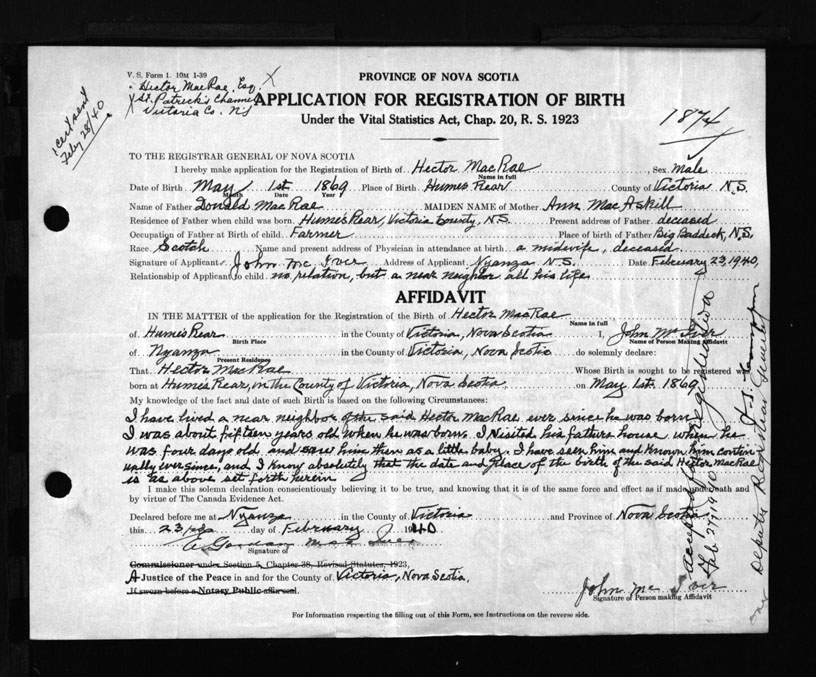 V. S. Form 1. 10M 1-39
Hector MacRae, Esq. X
X St. Patrick's Channel
Victoria Co. N.S.
cert sent
Feby 28/40
PROVINCE OF NOVA SCOTIA
APPLICATION FOR REGISTRATION OF BIRTH
Under the Vital Statistics Act, Chap. 20, R. S. 1923
1874
TO THE REGISTRAR GENERAL OF NOVA SCOTIA
I hereby make application for the Registration of Birth of Hector MacRae Sex Male
Name in full
Date of Birth May 1st 1869 Place of Birth Humes Rear County of Victoria N.S.
Month Date Year
Name of Father Donald MacRae MAIDEN NAME of Mother Ann MacAskill
Residence of Father when child was born Hume's Rear, Victoria County, N.S. Present address of Father deceased
Occupation of Father at Birth of child Farmer Place of birth of Father Big Baddeck, N.S.
Race Scotch Name and present address of Physician in attendance at birth a midwife, deceased
Signature of Applicant John Mc Iver Address of Applicant Nyanza N.S. Date February 23, 1940,
Relationship of Applicant to child no relation, but a near neighbor all his life
AFFIDAVIT
IN THE MATTER of the application for the Registration of the Birth of Hector MacRae
Name in full
of Humes Rear in the County of Victoria, Nova Scotia I, John Mc Iver
Birth Place Name of Person Making Affidavit
of Nyanza in the County of Victoria, Nova Scotia do solemnly declare:
Present Residence
That Hector MacRae Whose Birth is sought to be registered was
born at Humes Rear, in the County of Victoria, Nova Scotia on May 1st 1869
My knowledge of the fact and date of such Birth is based on the following Circumstances:
I have lived a near neighbor of the said Hector MacRae ever since he was born
I was about fifteen years old when he was born. I Visited his fathers house when he
was four days old and saw him then as a little baby. I have seen him and known him contin
ually ever since, and I know absolutely that the date and place of the birth of the said Hector MacRae
is as above set forth herein
I make this solemn declaration conscientiously believing it to be true, and knowing that it is of the same force and effect as if made under oath and
by virtue of The Canada Evidence Act.
Declared before me at Nyanza in the County of Victoria and Province of Nova Scotia
this 23rd day of February 1940
A Gordon Mac Iver
Signature of
Commissioner under Section 5, Chapter 38, Revised Statutes, 1923,
A Justice of the Peace in and for the County of Victoria, Nova Scotia,
If sworn before a Notary Public affix seal.
John Mc Iver
Signature of Person making Affidavit
For Information respecting the filling out of this Form, see Instructions on the reverse side.
Accepted for registration
Feb 27th 1940
Deputy Registrar General